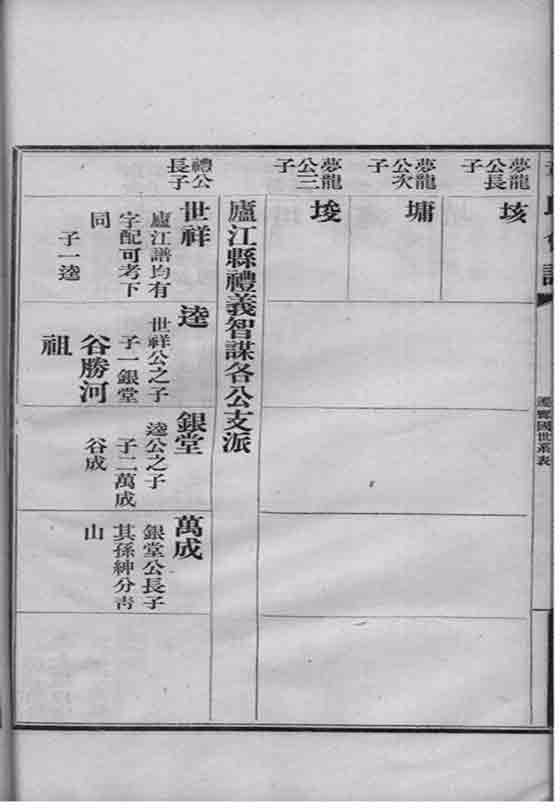 夢龍
公長
子
垓
夢龍
公次
子
墉
夢龍
公三
子
埈
廬江縣禮義智謀各公支派
禮公
長子
世祥
廬江譜均有
字配可考下
同
子一逵
逵
世祥公之子
子一銀堂
谷勝河
祖
銀堂
逵公之子
子二萬成
谷成
萬成
銀堂公長子
其孫紳分靑
山
國世系表